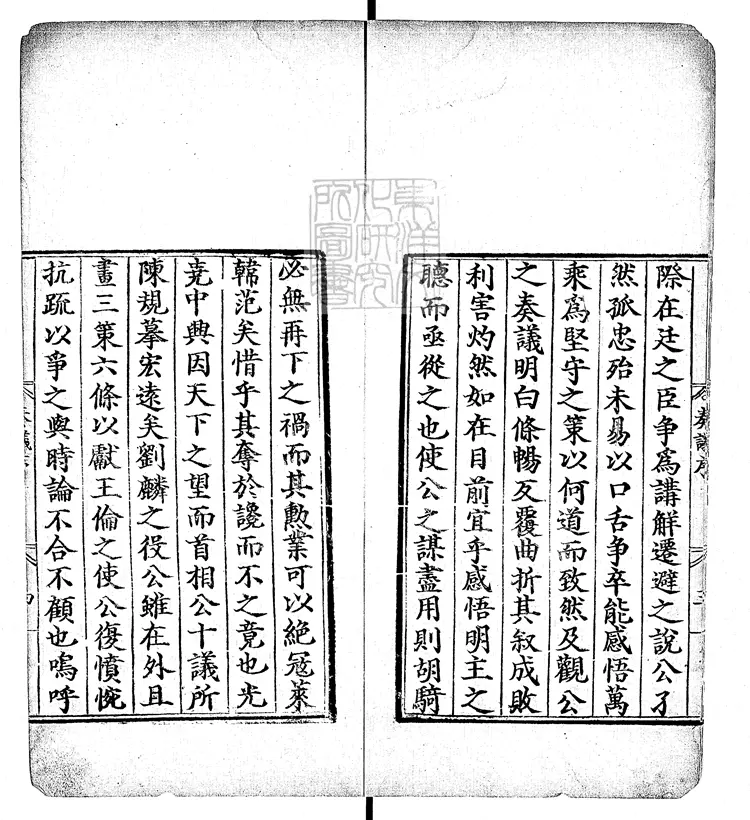 際在廷之臣争為講解遷避之說公孑
然孤忠殆未易以口舌争卒能感悟萬
乘爲堅守之策以何道而致然及觀公
之奏議明白條暢反覆曲折其叙成敗
利害灼然如在目前宜乎感悟明主之
聽而亟從之也使公之謀盡用則胡騎
奏議序
三
必無再下之禍而其勲業可以絶冦萊
韓范矣惜乎其奪於讒而不之竟也光
堯中興因天下之望而首相公十議所
陳規摹宏遠矣劉麟之役公雖在外且
畫三策六條以獻王倫之使公復憤惋
抗疏以爭之與時論不合不顧也嗚呼
奏議序
四
東洋文
化研究
所圖書